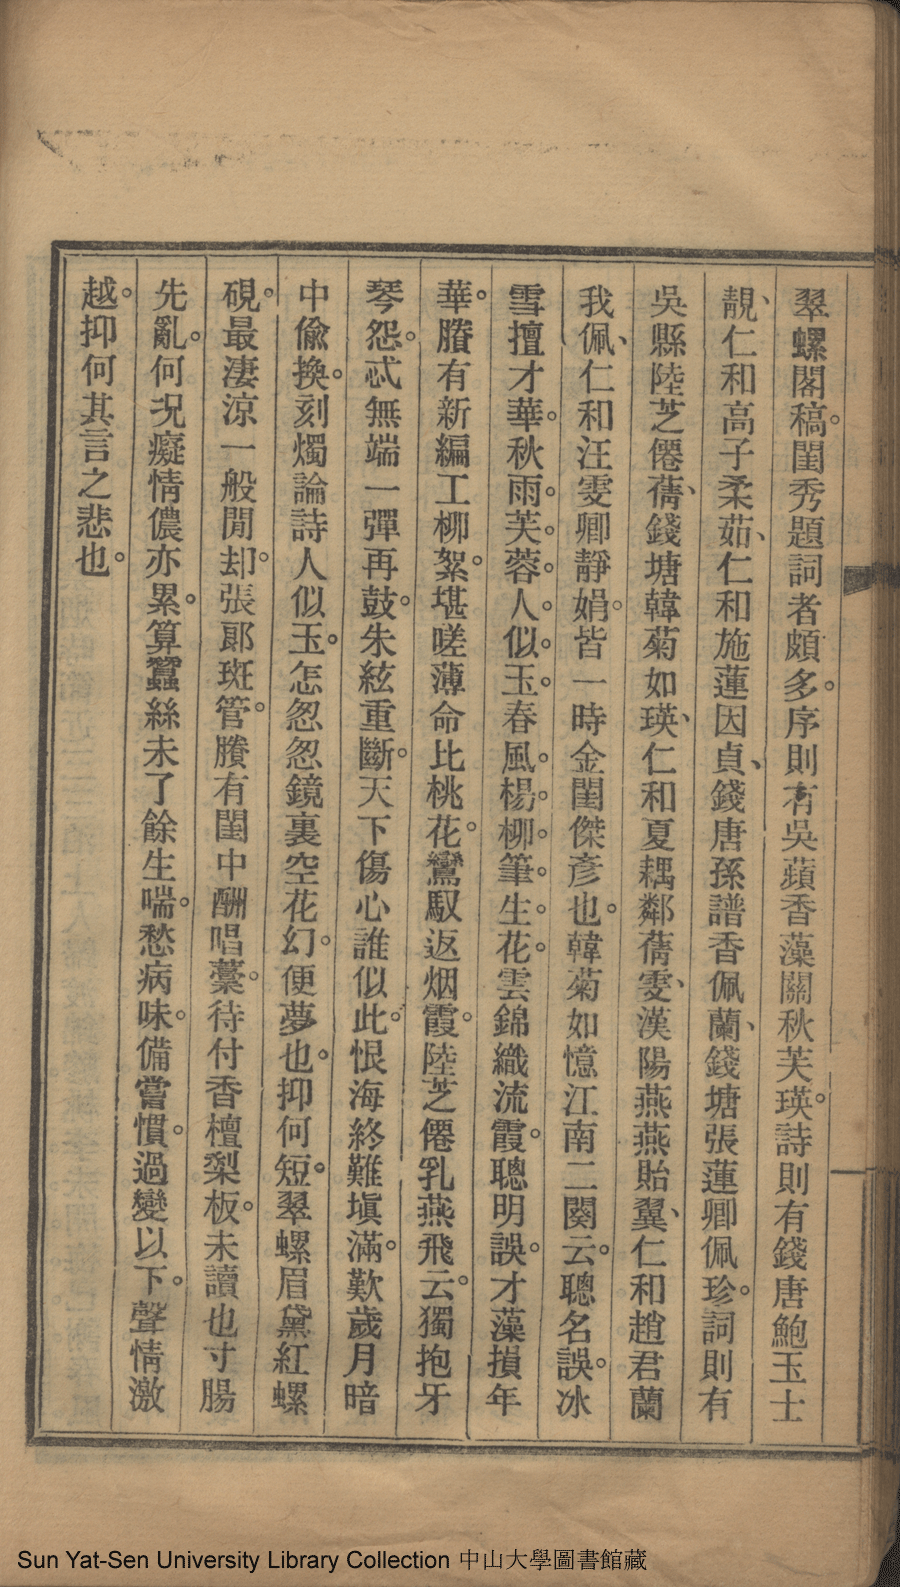 翠螺閣稿。閨秀題詞者頗多。序則有吳蘋香藻關秋芙瑛。詩則有錢唐鮑玉士
靚、仁和高子柔茹、仁和施蓮因貞、錢唐孫譜香佩蘭、錢塘張蓮卿佩珍。詞則有
吳縣陸芝僊蒨、錢塘韓菊如瑛、仁和夏耦鄰蒨雯、漢陽燕燕貽翼、仁和趙君蘭
我佩、仁和汪雯卿靜娟。皆一時金閨傑彥也。韓菊如憶江南二闋云。聰名誤。冰
雪擅才華。秋雨。芙。蓉。人。似。玉。春風。楊。柳。筆。生。花。雲錦織流霞。聰明誤。才藻損年
華。賸有新編工柳絮。堪嗟薄命比桃花。鸞馭返烟霞。陸芝僊乳燕飛云。獨抱牙
琴怨。忒無端一彈再鼓。朱絃重斷。天下傷心誰似此。恨海終難塡滿。歎歲月暗
中偸換。刻燭論詩人似玉。怎怱怱鏡裏空花幻。便夢也。抑何短。翠螺眉黛紅螺
硯。最淒涼一般閒却。張郞斑管。賸有閨中酬唱藳。待付香檀梨板。未讀也寸腸
先亂。何況癡情儂亦累。算蠶絲未了餘生喘。愁病味。備嘗慣。過變以下。聲情激
越。抑何其言之悲也。
Sun Yat-Sen University Library Collection 中山大學圖書館藏